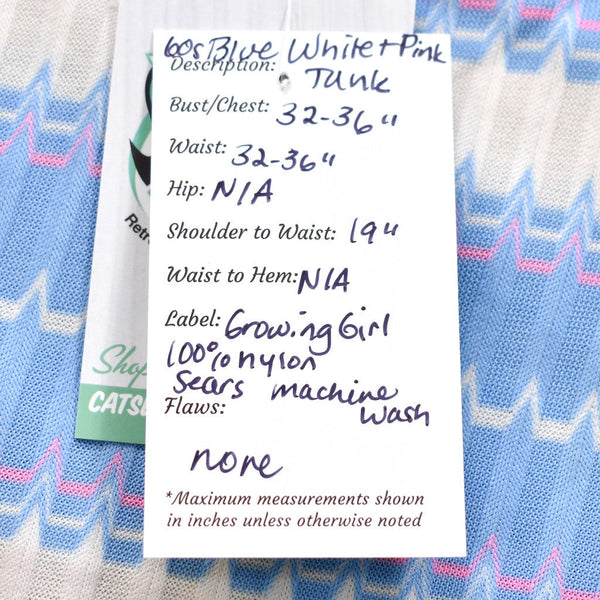 60s Blue White + Pink
Description: Tank
Bust/Chest: 32-36"
Waist: 32-36"
Hip: N/A
Shoulder to Waist: 19"
Waist to Hem: N/A
Label: Growing Girl
100% nylon
Sears machine
Flaws: wash
none
*Maximum measurements shown
in inches unless otherwise noted
Retro
Shop
CATS